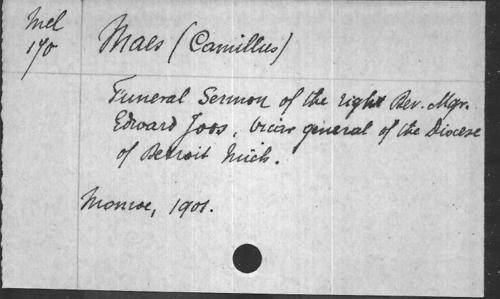 Mel
170
Maes (Camillus)
Funeral Sermon of the right Rev. Mgr.
Edward Joos, vicar general of the Diocese
of Detroit Mich.
Monroe, 1901.